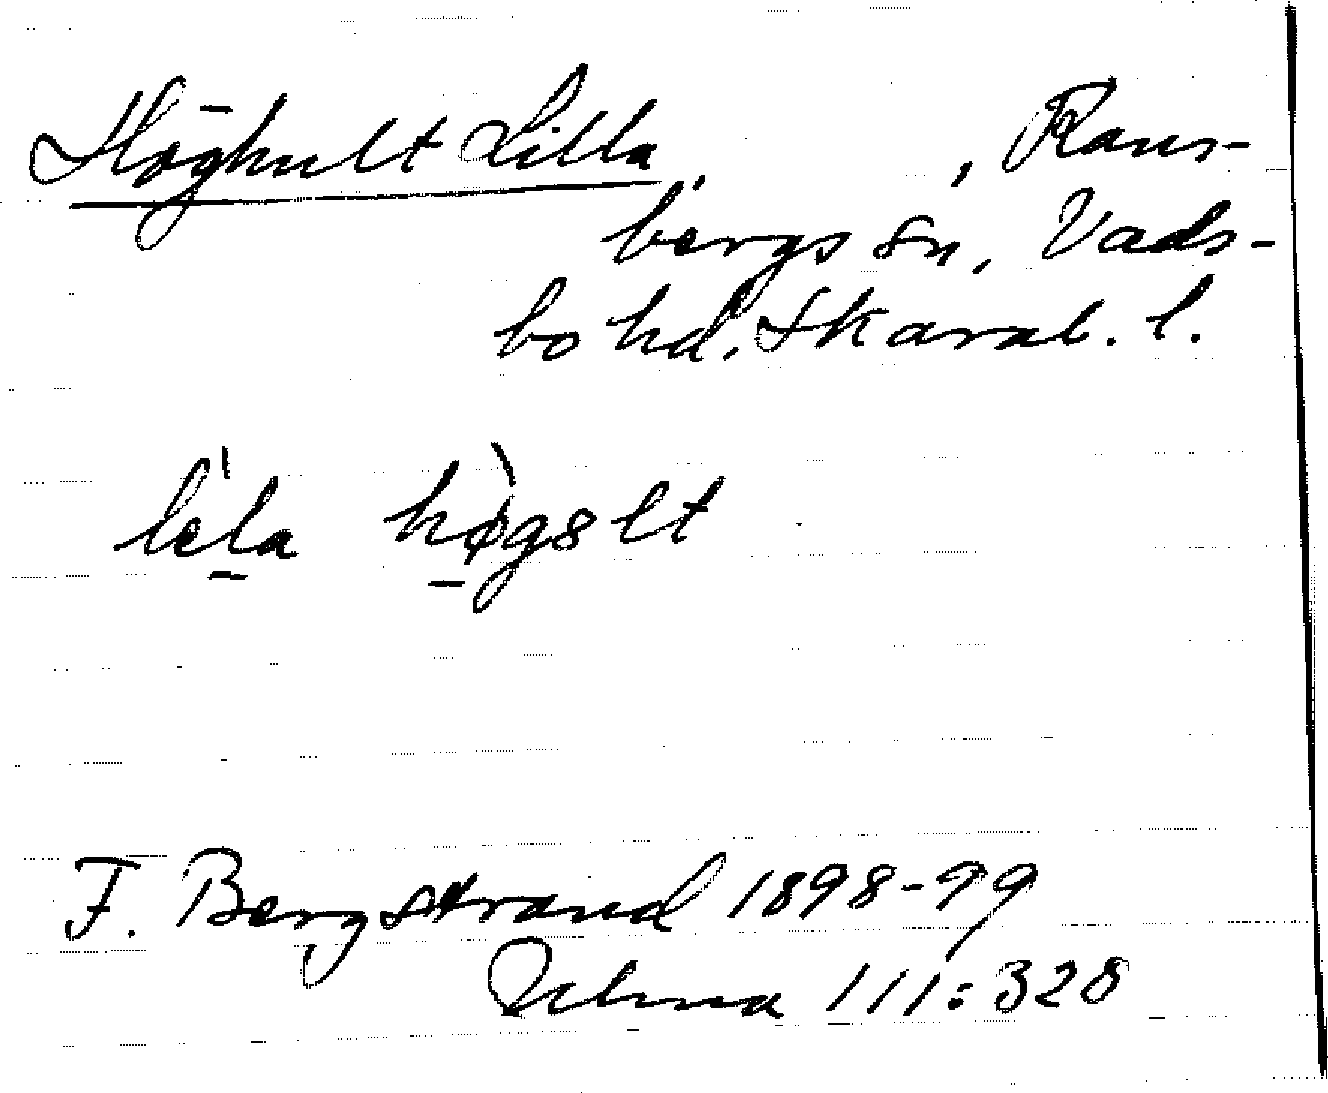 Höghult Lilla, , Rans-
bergs sn, Vads-
bo hd. Skarab. l.
lèla hø̀gslt
F. Bergstrand 1898-99
Ulma 111:328